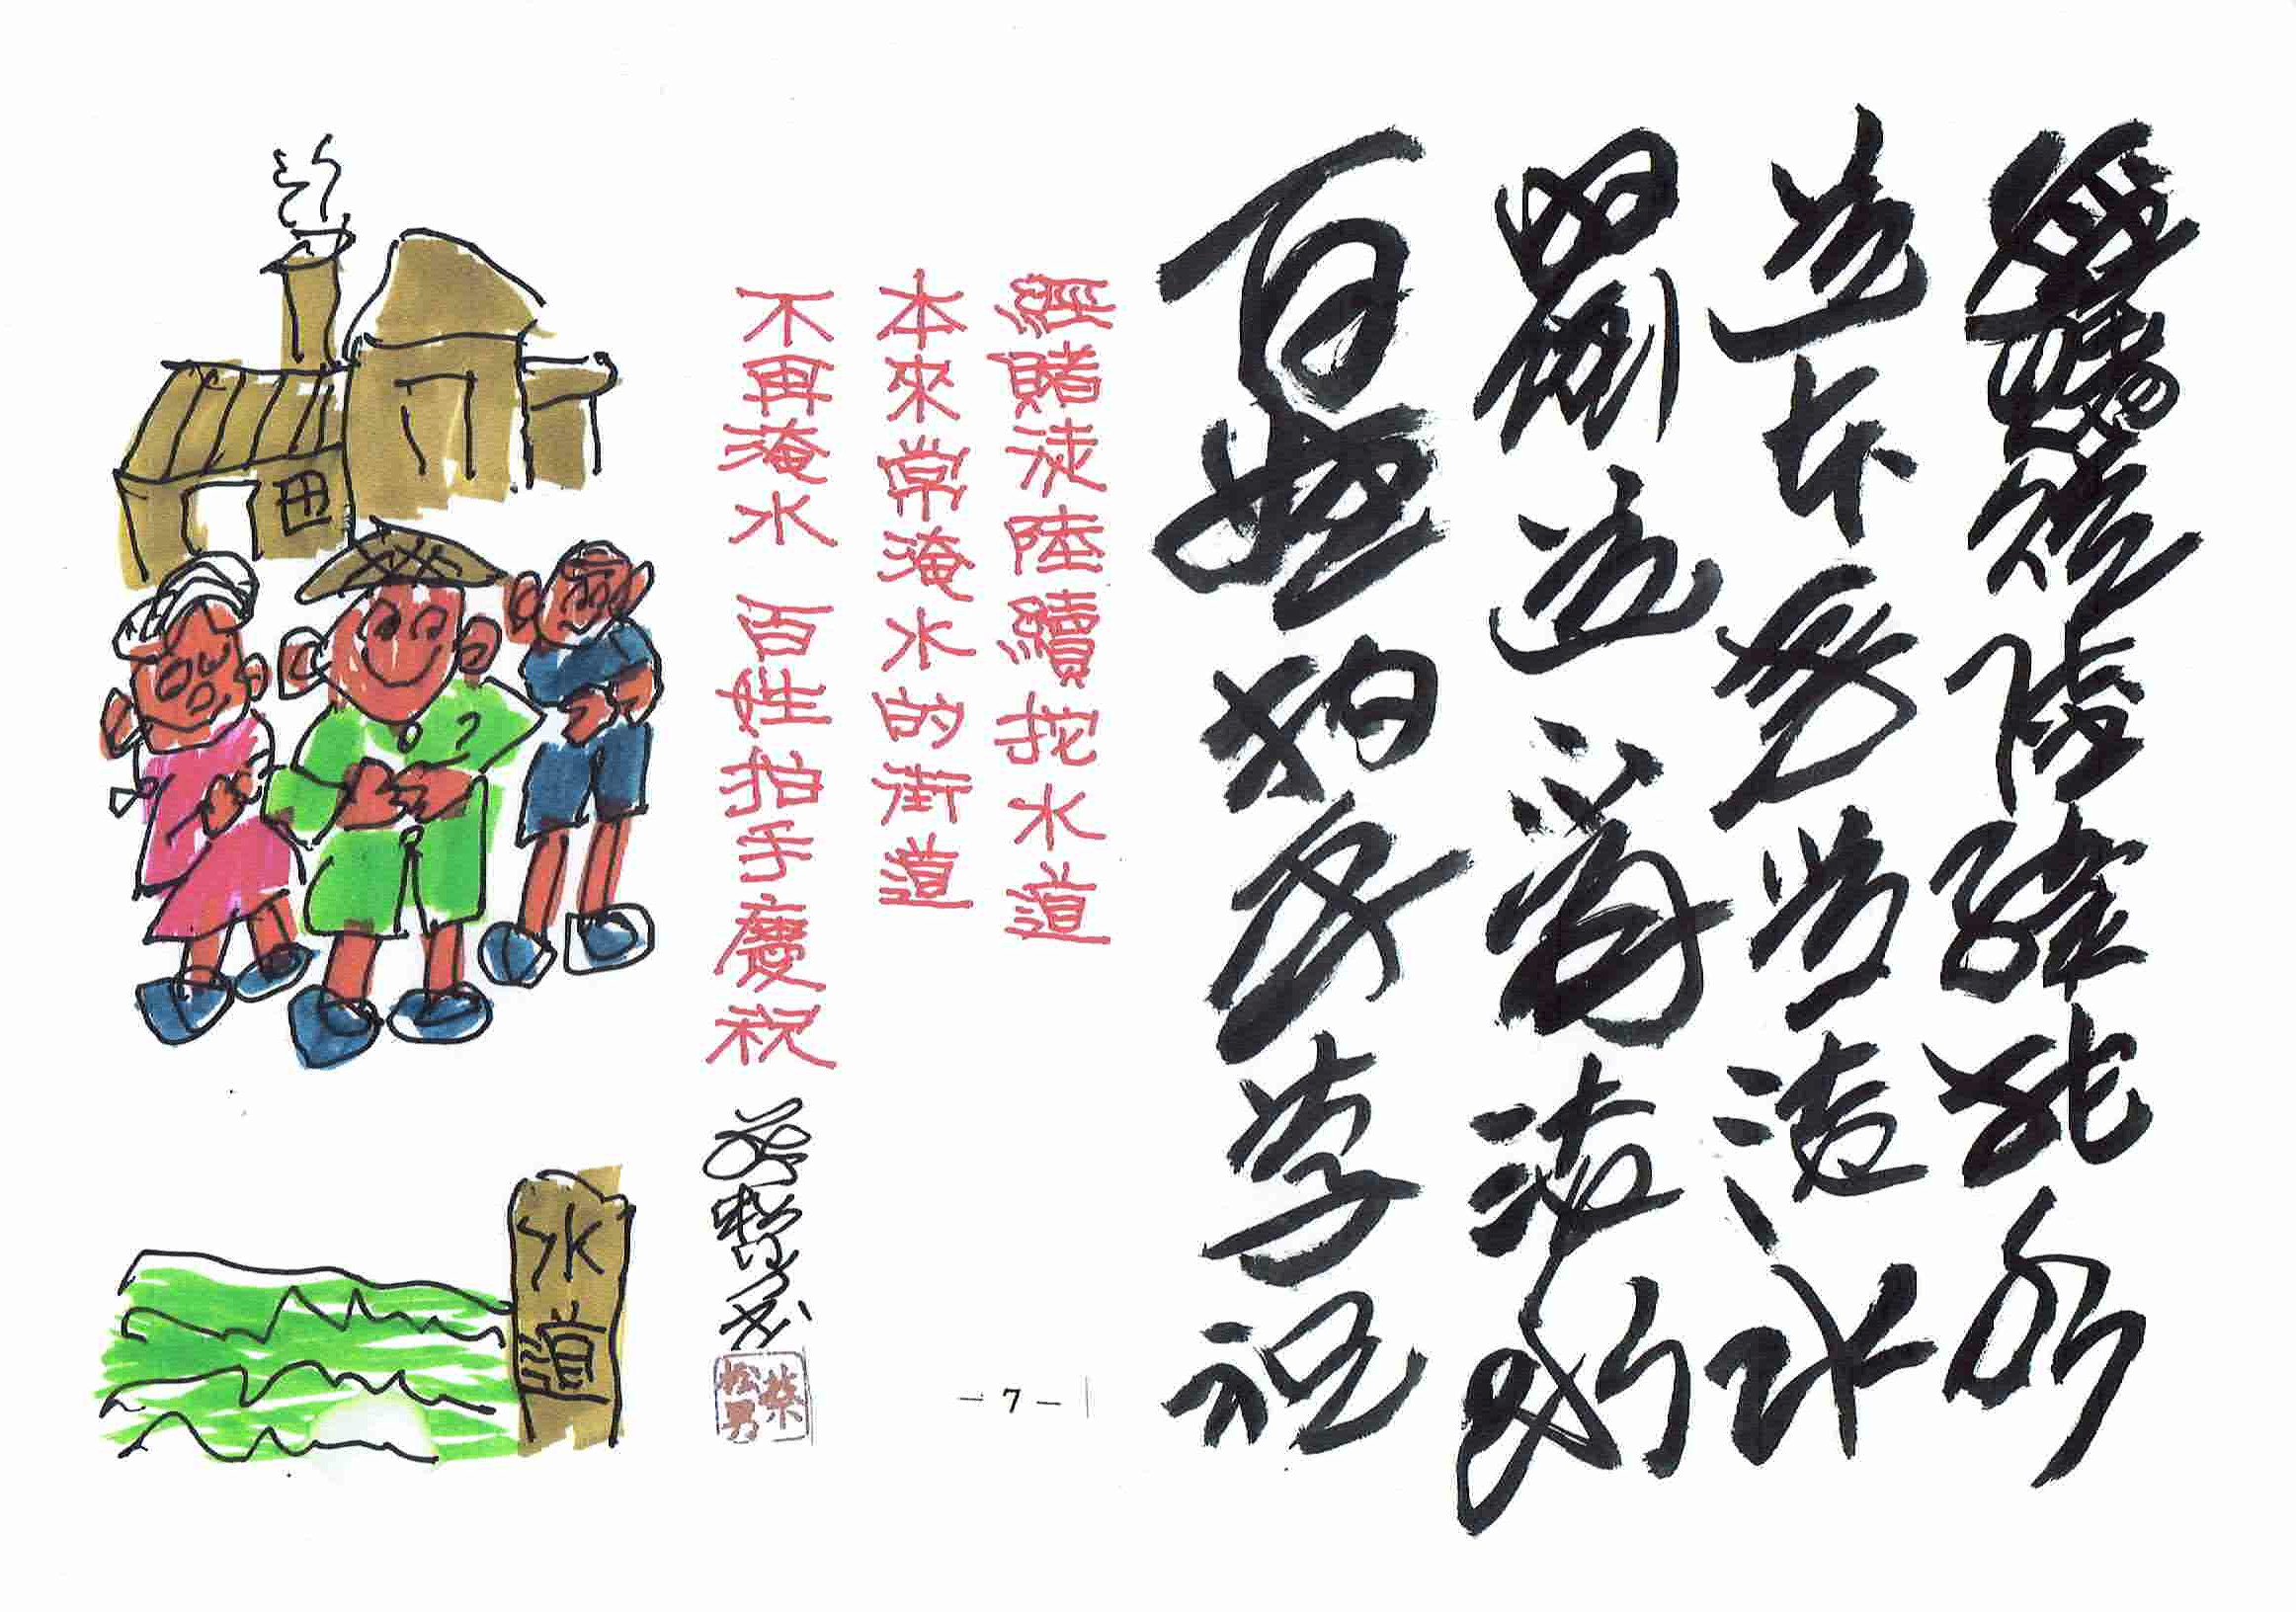 經賭徒陸續挖水
道本來常淹水
的街道不再淹水
百姓拍手慶祝
經賭徒陸續挖水道
本來常淹水的街道
不再淹水 百姓拍手慶祝
蔡松男
- 7 -
水道